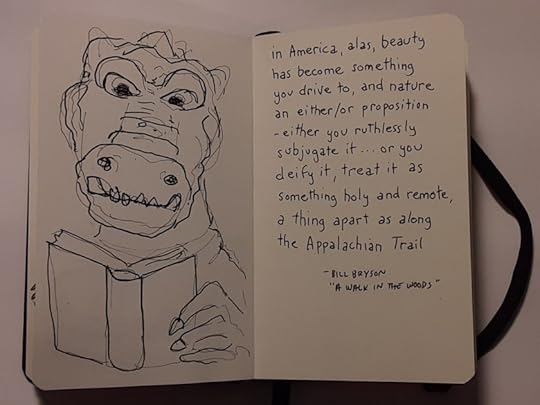 in America, alas, beauty
has become something
you drive to, and nature
an either/or proposition
- either you ruthlessly
subjugate it ... or you
deify it, treat it as
something holy and remote,
a thing apart as along
the Appalachian Trail
- BILL BRYSON
"A WALK IN THE WOODS"